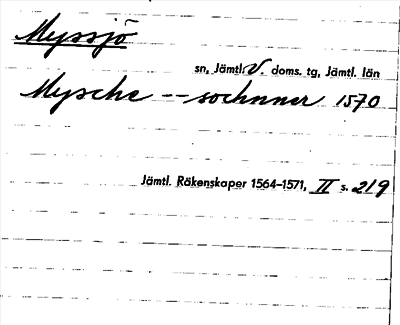 Myssjö
sn, Jämtl V. doms. tg, Jämtl. län
Mysche -- sochnner 1570
Jämtl. Räkenskaper 1564-1571, II s. 219